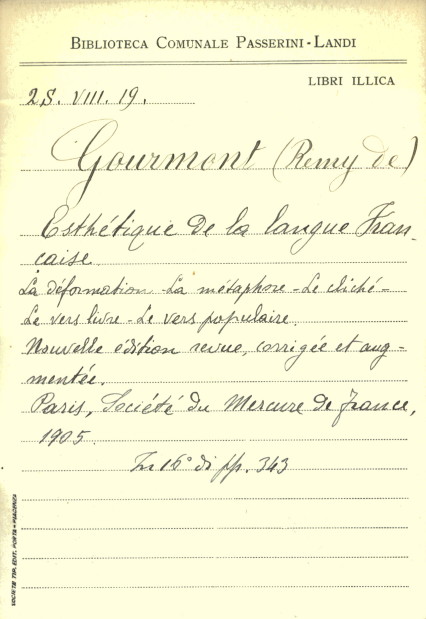 BIBLIOTECA COMUNALE PASSERINI-LANDI
LIBRI ILLICA
2S. VIII. 19.
Gourmont (Remy de)
Esthétique de la langue Fran-
caise
La déformation - La métaphore - Le cliché -
Le vers libre - Le vers populaire.
Nouvelle edition revue, corrigée et aug-
mentée.
Paris, Société du Mercure de France,
1905
In 16° di pp. 343
SOCIETÀ TIP. EDIT. PORTA - PIACENZA